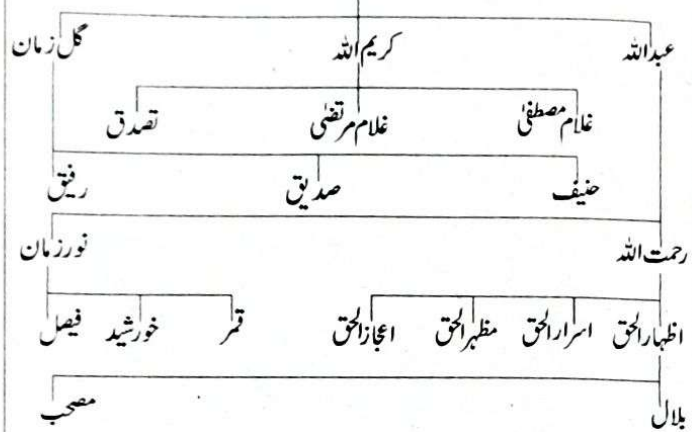 عبداللہ کریم اللہ گل زمان
غلام مصطفیٰ غلام مرتضیٰ تصدق
حنیف صدیق رفیق
رحمت اللہ نورزمان
اظہارالحق اسرارالحق مظہرالحق اعجازالحق قمر خورشید فیصل
بلال مصحب